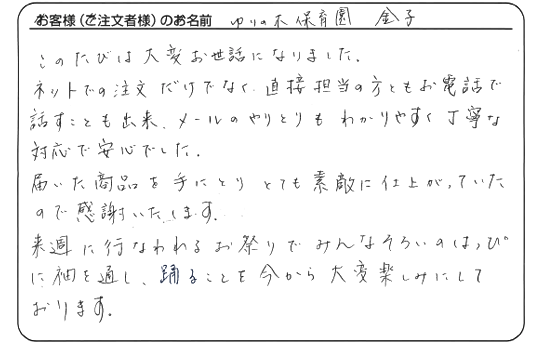 お客様（ご注文者様）のお名前 ゆりの木保育園 金子
このたびは大変お世話になりました。
ネットでの注文だけでなく、直接担当の方ともお電話で
話すことも出来、メールのやりとりもわかりやすく丁寧な
対応で安心でした。
届いた商品を手にとり とても素敵に仕上がっていた
ので感謝いたします。
来週に行なわれるお祭りでみんなそろいのはっぴ
に袖を通し、踊ることを今から大変楽しみにして
おります。